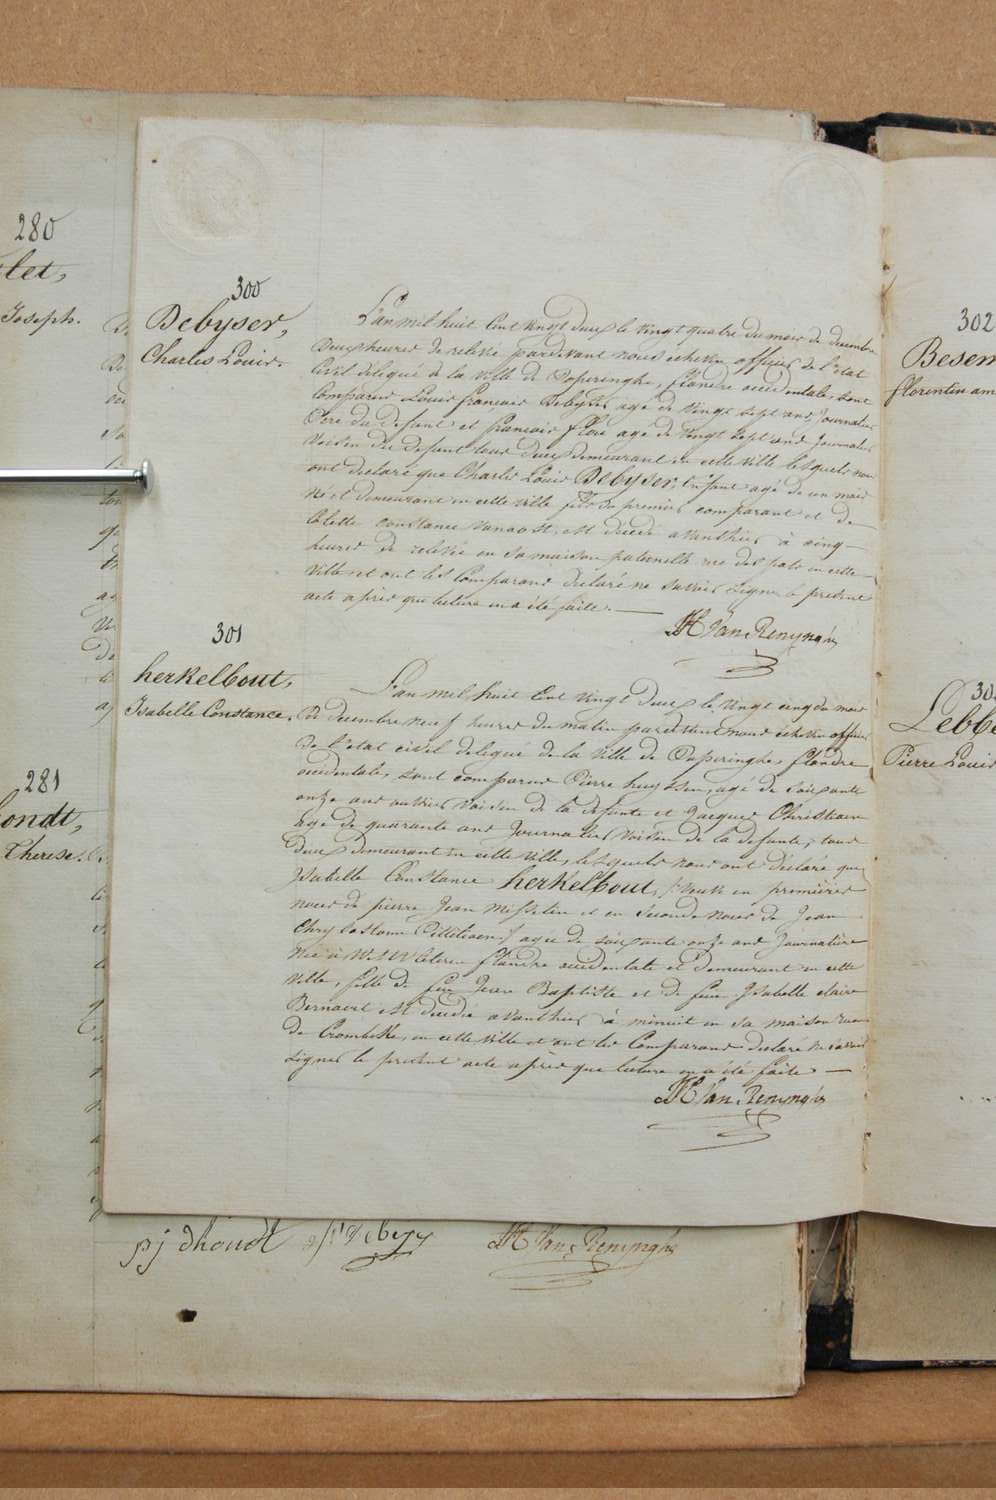 280
let,
Joseph.
281
ondt,
Therese.
300
Debyser,
Charles Louis.
L'an mil huit Cent vingt deux le vingt quatre du mois de decembre
Deux heures de relevée pardevant nous échevin officier de l'etat
Civil delegué de la ville de Poperinghe, flandre occidentale, sont
Comparus Louis françois Debyser agé de vingt sept ans Journalier
Pere du defunt et francois flore agé de vingt sept ans Journalier
Voisin du Defunt tous deux demeurant en cette ville lesquels nous
ont declaré que Charles Louis Debyser, Enfant agé de un mois
Né et demeurant en cette ville fils du premier comparant et de
Colette constance vanacst, est décédé avanthier à cinq
heures de relevée en sa maison paternelle rue des pots en cette
Ville et ont les Comparans declaré ne savoir signer le présent
acte après que lecture en a été faite.
Van Renynghe
301
herkelbout,
Isabelle Constance.
L'an mil huit Cent vingt deux le vingt cinq du mois
De decembre neuf heures du matin pardevant nous échevin officier
de l'etat civil delegué de la ville de Poperinghe, flandre
occidentale, sont comparus Pierre huyssen, agé de soixante
onze ans ouvrier voisin de la defunte et Jacques Christiaen
agé de quarante ans Journalier voisin de la defunte, tous
Deux demeurant en cette ville, lesquels nous ont déclaré que
Ysabelle Constance herkelbout, veuve en premières
noces de pierre Jean Misselin et en seconde noces de Jean
Chrysostome agée de soixante onze ans Journalière
Née à flandre occidentale et demeurant en cette
ville, fille de feu Jean Baptiste et de feue Ysabelle claire
Bernaert est décédée avanthier à minuit en sa maison rue
de Crombeke, en cette ville et ont les Comparans declaré ne savoir
signer le présent acte après que lecture en a été faite
Van Renynghe
pj dhondt Debezy Van Renynghe
302
Besem
florentin am
30
Lebbe
Pierre Louis